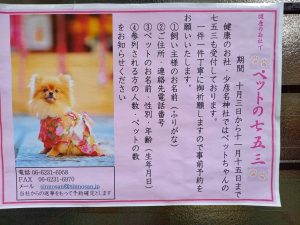 健康のお社で
ペットの七五三
期間 十月三日から十一月十五日まで
健康のお社、少彦名神社ではペットちゃんの
七五三も受付しております。
一件一件丁寧に御祈願しますので事前予約を
お願いいたします。
①飼い主様のお名前(ふりがな)
②ご住所・連絡先電話番号
③ペットのお名前・性別・年齢(生年月日)
④参列される方の人数・ペットの数
をお知らせください
電話 06-6231-6958
FAX 06-6231-6970
メール sinnosan@sinnosan.jp
当社からの返事をもって予約確定とします